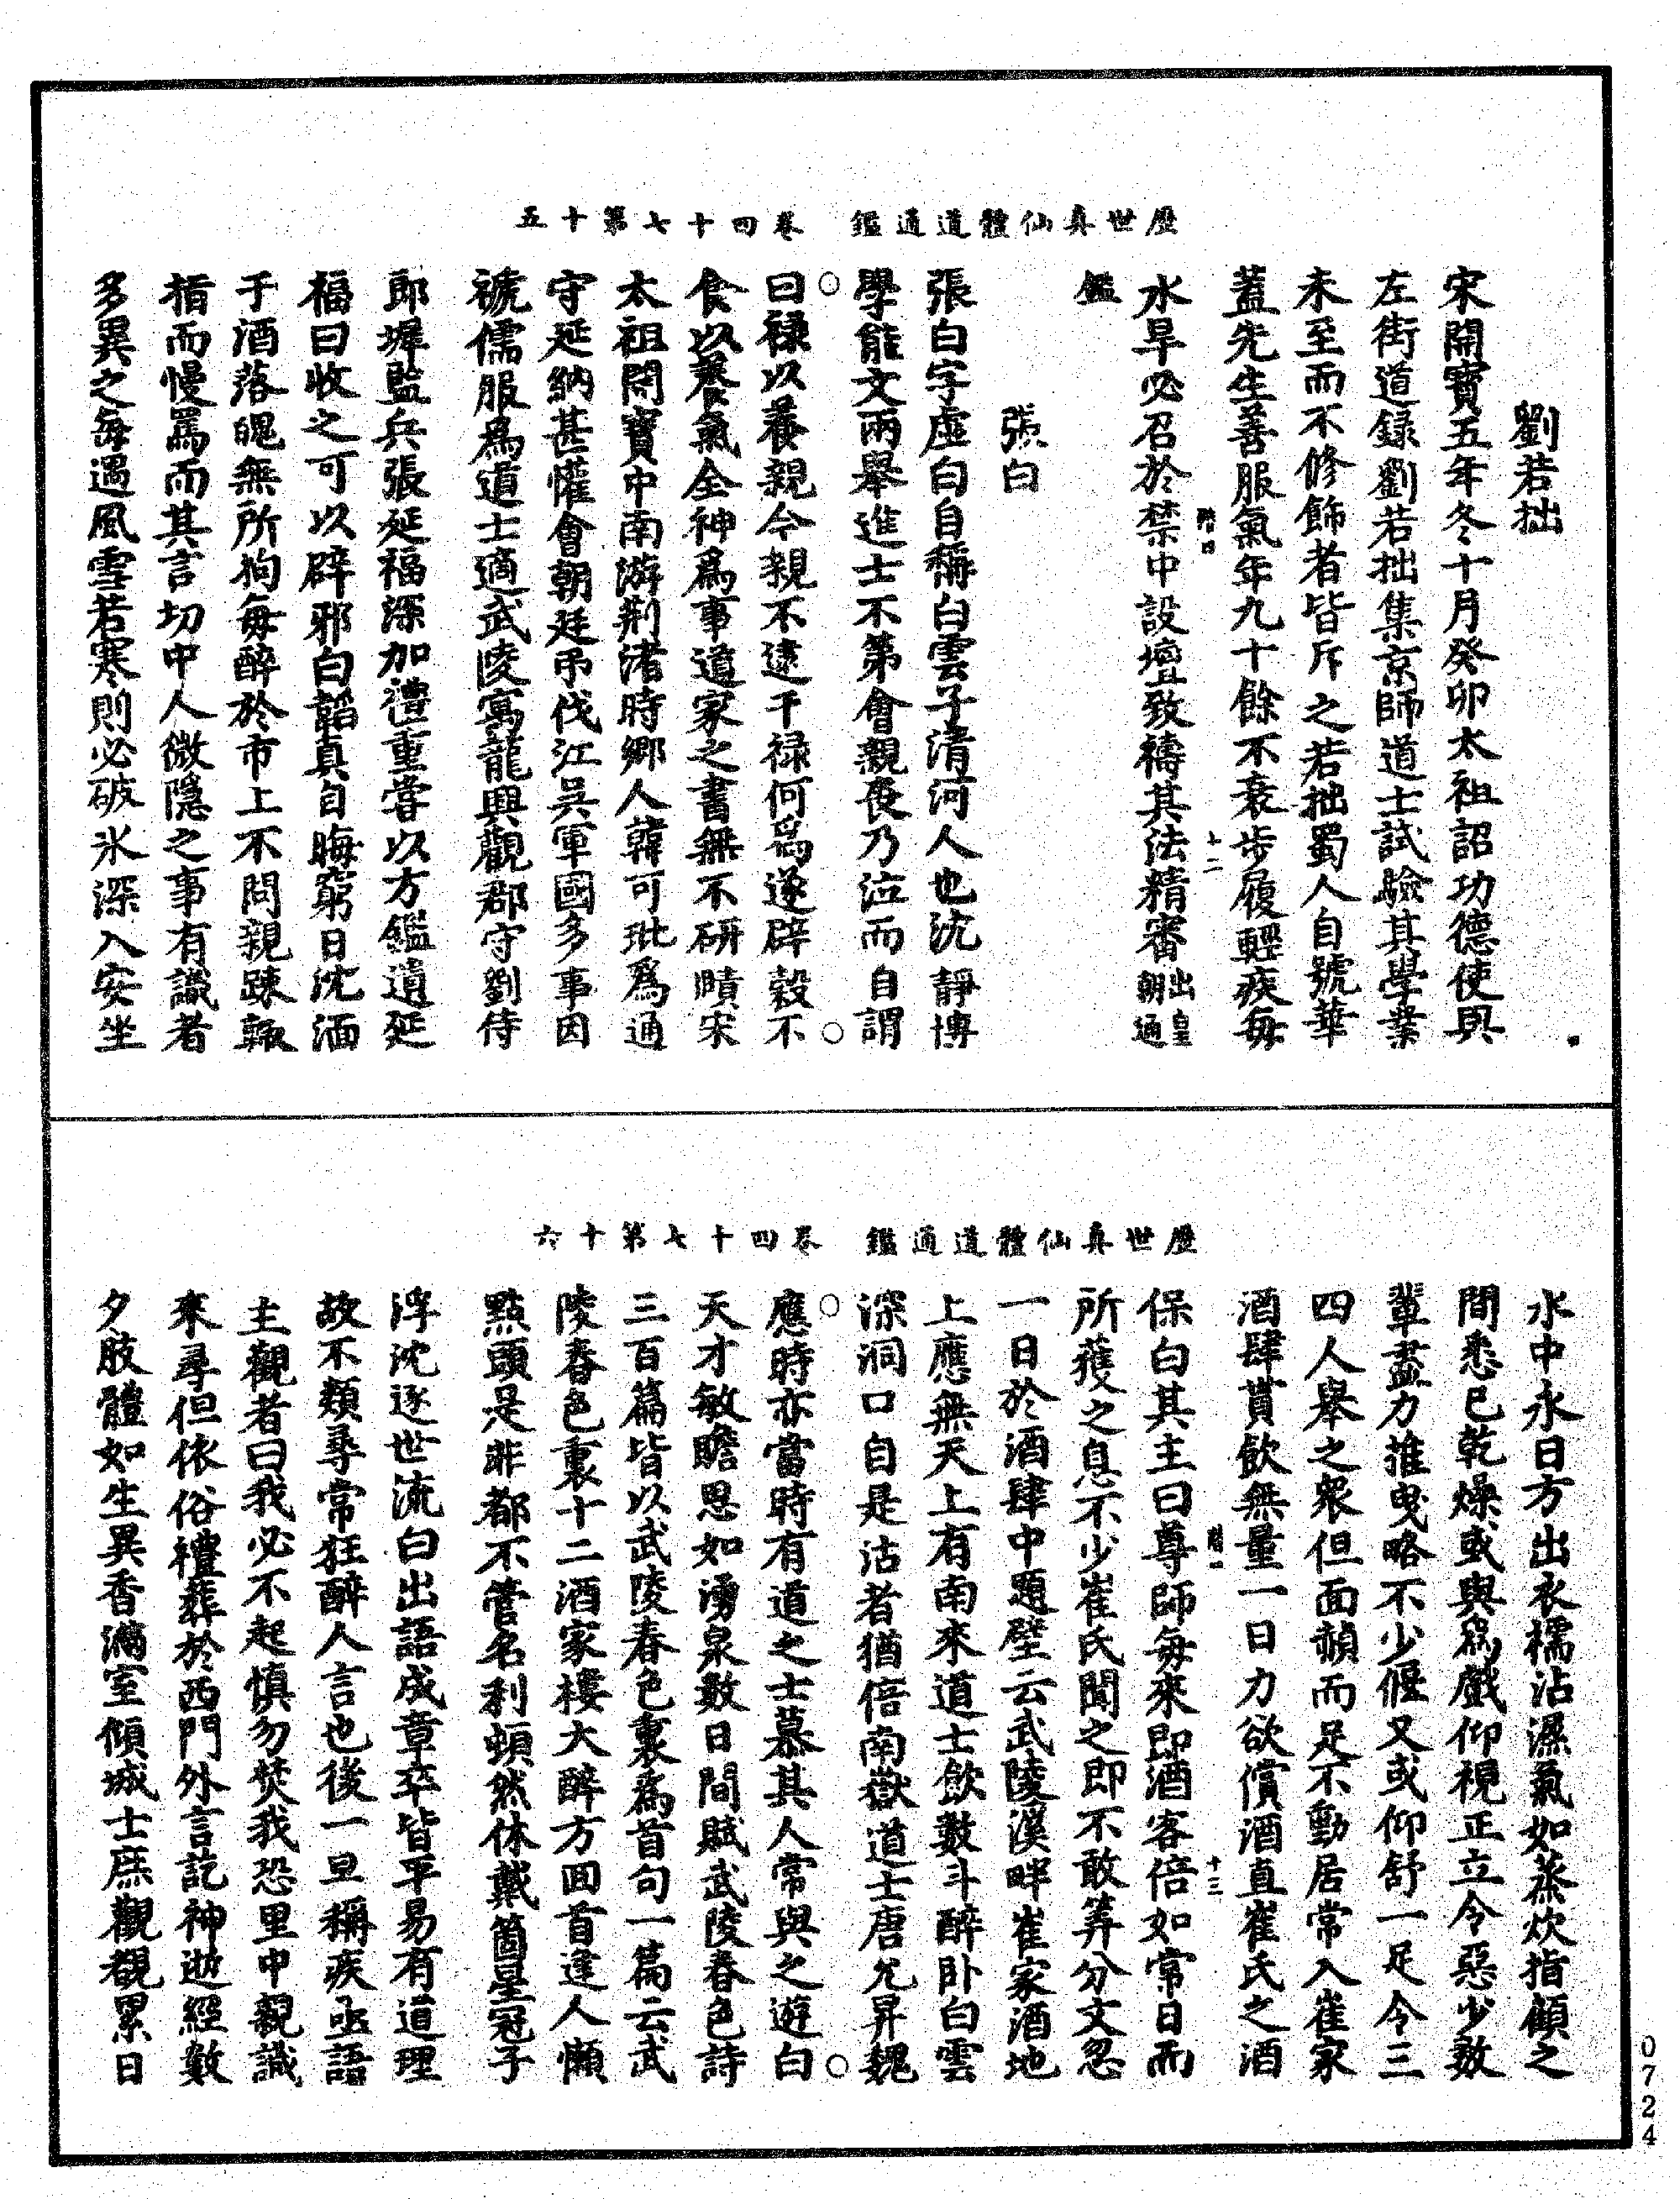 歷世真仙體道通鑑　卷四十七第十五
劉若拙
宋開寶五年冬十月癸卯太祖詔功德使與
左街道録劉若拙集京師道士試驗其學業
未至而不修飾者皆斥之若拙蜀人自號華
蓋先生善服氣年九十餘不衰步履輕疾每
水旱必召於禁中設壇致禱其法精審出皇朝通
鑑
張白
張白字虛白自稱白雲子清河人也沈靜博
學能文兩舉進士不第會親喪乃泣而自謂
曰禄以養親今親不逮干禄何爲遂辟穀不
食以養氣全神爲事道家之書無不研賾宋
太祖開寶中南游荆渚時鄉人韓可玭爲通
守延納甚懽會朝廷弔伐江吳軍國多事因
褫儒服爲道士適武陵寓龍興觀郡守劉侍
郎墀監兵張延福深加禮重嘗以方鑑遺延
福曰收之可以辟邪白韜真自晦窮日沈湎
于酒落魄無所拘每醉於市上不問親踈輙
指而慢罵而其言切中人微隱之事有識者
多異之每遇風雪苦寒則必破氷深入安坐
歷世真仙體道通鑑　卷四十七第十六
水中永日方出衣襦沾濕氣如蒸炊指顧之
間悉已乾燥或與爲戲仰視正立令惡少數
輩盡力推曳略不少偃又或仰舒一足令三
四人舉之衆但面頳而足不動居常入崔家
酒肆貰飲無量一日力欲償酒直崔氏之酒
保白其主曰尊師每來即酒客倍如常日而
所獲之息不少崔氏聞之即不敢筭分文忽
一日於酒肆中題壁云武陵溪畔崔家酒地
上應無天上有南來道士飲數斗醉卧白雲
深洞口自是沽者猶倍南嶽道士唐允昇魏
應時亦當時有道之士慕其人常與之遊白
天才敏贍思如湧泉數日間賦武陵春色詩
三百篇皆以武陵春色裏爲首句一篇云武
陵春色裏十二酒家樓大醉方回首逢人懶
點頭是非都不管名利頓然休戴箇星冠子
浮沈逐世流白出語成章卒皆平易有道理
故不類尋常狂醉人言也後一旦稱疾亟語
主觀者曰我必不起慎勿焚我恐里中親識
來尋但依俗禮葬於西門外言訖神逝經數
夕肢體如生異香滿室傾城士庶觀覩累日
0724